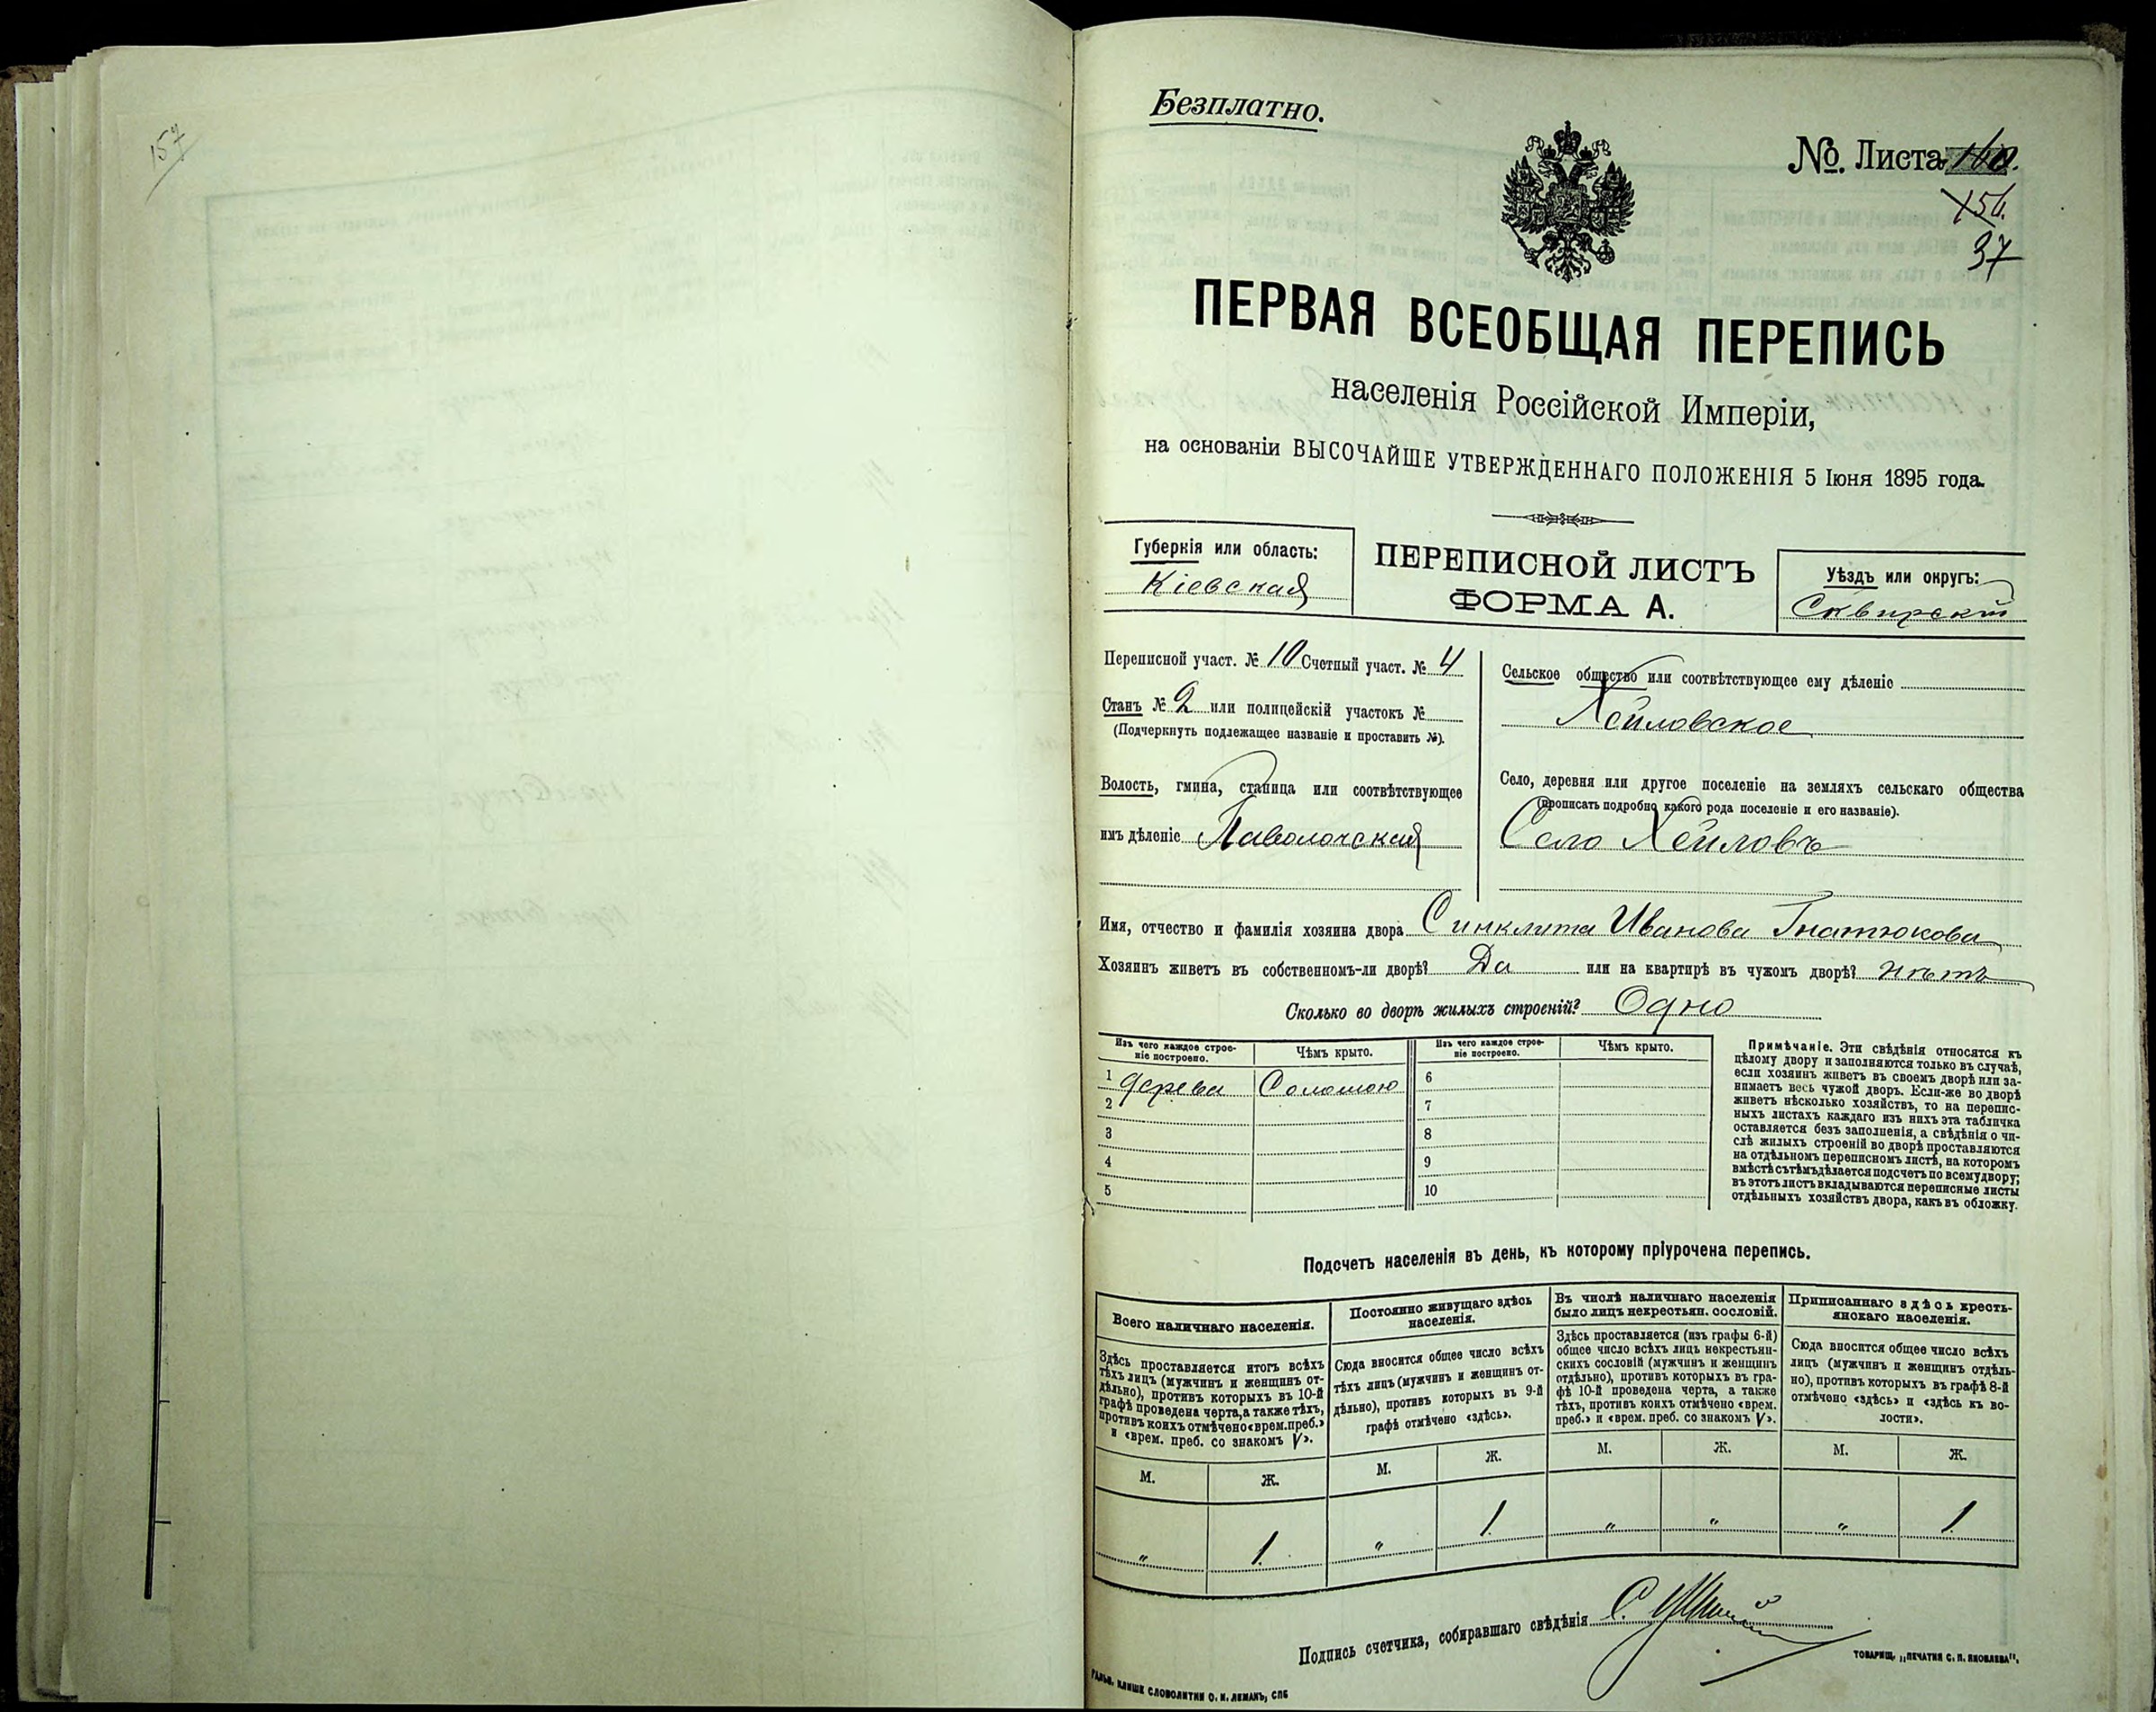 157
Безплатно.
№ Листа 160.
156.
37
ПЕРВАЯ ВСЕОБЩАЯ ПЕРЕПИСЬ
населенія Россійской Имперіи,
на основаніи ВЫСОЧАЙШЕ УТВЕРЖДЕННАГО ПОЛОЖЕНІЯ 5 Іюня 1895 года.
Губернія или область:
Кіевская
ПЕРЕПИСНОЙ ЛИСТЪ
ФОРМА А.
Уѣздъ или округъ:
Сквирскій
Переписной участ. № 10 Счетный участ. № 4
Станъ № 2 или полицейскій участокъ №
(Подчеркнуть подлежащее названіе и проставить №).
Волость, гмина, станица или соотвѣтствующее
имъ дѣленіе Паволочская
Сельское общество или соотвѣтствующее ему дѣленіе
Хейловское
Село, деревня или другое поселеніе на земляхъ сельскаго общества
(прописать подробно какого рода поселеніе и его названіе).
Село Хейловъ
Имя, отчество и фамилія хозяина двора Синклита Иванова Гнатюкова
Хозяинъ живетъ въ собственномъ-ли дворѣ? Да или на квартирѣ въ чужомъ дворѣ? нѣтъ
Сколько во дворѣ жилыхъ строеній? Одно
Изъ чего каждое строе-
ніе построено.
Чѣмъ крыто.
Изъ чего каждое строе-
ніе построено.
Чѣмъ крыто.
1 дерева Соломою 6
2 7
3 8
4 9
5 10
Примѣчаніе. Эти свѣдѣнія относятся къ
цѣлому двору и заполняются только въ случаѣ,
если хозяинъ живетъ въ своемъ дворѣ или за-
нимаетъ весь чужой дворъ. Если-же во дворѣ
живетъ нѣсколько хозяйствъ, то на перепис-
ныхъ листахъ каждаго изъ нихъ эта табличка
оставляется безъ заполненія, а свѣдѣнія о чи-
слѣ жилыхъ строеній во дворѣ проставляются
на отдѣльномъ переписномъ листѣ, на которомъ
вмѣстѣ съ тѣмъ дѣлается подсчетъ по всему двору;
въ этотъ листъ вкладываются переписные листы
отдѣльныхъ хозяйствъ двора, какъ въ обложку.
Подсчетъ населенія въ день, къ которому пріурочена перепись.
Всего наличнаго населенія.
Здѣсь проставляется итогъ всѣхъ
тѣхъ лицъ (мужчинъ и женщинъ от-
дѣльно), противъ которыхъ въ 10-й
графѣ проведена черта, а также тѣхъ,
противъ коихъ отмѣчено «врем. преб.»
и «врем. преб. со знакомъ V».
Постоянно живущаго здѣсь
населенія.
Сюда вносится общее число всѣхъ
тѣхъ лицъ (мужчинъ и женщинъ от-
дѣльно), противъ которыхъ въ 9-й
графѣ отмѣчено «здѣсь».
Въ числѣ наличнаго населенія
было лицъ некрестьян. сословій.
Здѣсь проставляется (изъ графы 6-й)
общее число всѣхъ лицъ некрестьян-
скихъ сословій (мужчинъ и женщинъ
отдѣльно), противъ которыхъ въ гра-
фѣ 10-й проведена черта, а также
тѣхъ, противъ коихъ отмѣчено «врем.
преб.» и «врем. преб. со знакомъ V».
Приписаннаго здѣсь кресть-
янскаго населенія.
Сюда вносится общее число всѣхъ
лицъ (мужчинъ и женщинъ отдѣль-
но), противъ которыхъ въ графѣ 8-й
отмѣчено «здѣсь» и «здѣсь къ во-
лости».
М. Ж. М. Ж. М. Ж. М. Ж.
" 1. " 1. " " " 1.
Подпись счетчика, собиравшаго свѣдѣнія
ТОВАРИЩ. „ПЕЧАТНЯ С. П. ЯКОВЛЕВА".
ГАЛЬВ. КЛИШЕ СЛОВОЛИТНИ О. И. ЛЕМАНЪ, СПБ